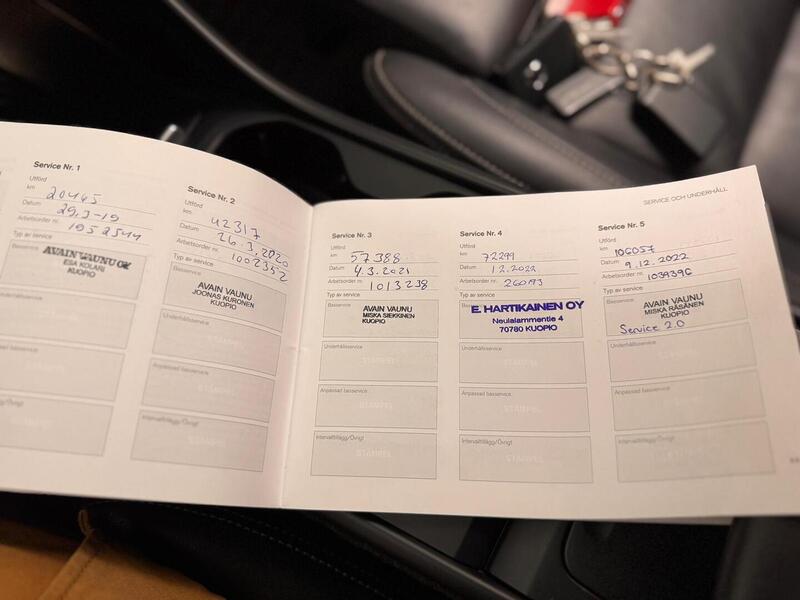 Service Nr. 1
Utförd
km 20445
Datum 29.3-19
Arbetsorder nr.
Typ av service
AVAIN VAUNU OY
ESA KOLARI
KUOPIO
Service Nr. 2
Utförd
km 42317
Datum 26.3.2020
Arbetsorder nr. 1002352
Typ av service
Basservice
AVAIN VAUNU
JOONAS KURONEN
KUOPIO
Underhållsservice
STÄMPEL
Anpassad basservice
STÄMPEL
Intervalltillägg/Övrigt
STÄMPEL
SERVICE OCH UNDERHÅLL
Service Nr. 3
Utförd
km 57388
Datum 4.3.2021
Arbetsorder nr. 1013238
Typ av service
Basservice
AVAIN VAUNU
MISKA SIEKKINEN
KUOPIO
Underhållsservice
STÄMPEL
Anpassad basservice
STÄMPEL
Intervalltillägg/Övrigt
STÄMPEL
Service Nr. 4
Utförd
km 72299
Datum 1.2.2022
Arbetsorder nr. 260193
Typ av service
Basservice
E. HARTIKAINEN OY
Neulalammentie 4
70780 KUOPIO
Underhållsservice
STÄMPEL
Anpassad basservice
STÄMPEL
Intervalltillägg/Övrigt
STÄMPEL
Service Nr. 5
Utförd
km 106057
Datum 9.12.2022
Arbetsorder nr. 1039396
Typ av service
Basservice
AVAIN VAUNU
MISKA RÄSÄNEN
KUOPIO
Service 2.0
Underhållsservice
STÄMPEL
Anpassad basservice
STÄMPEL
Intervalltillägg/Övrigt
STÄMPEL